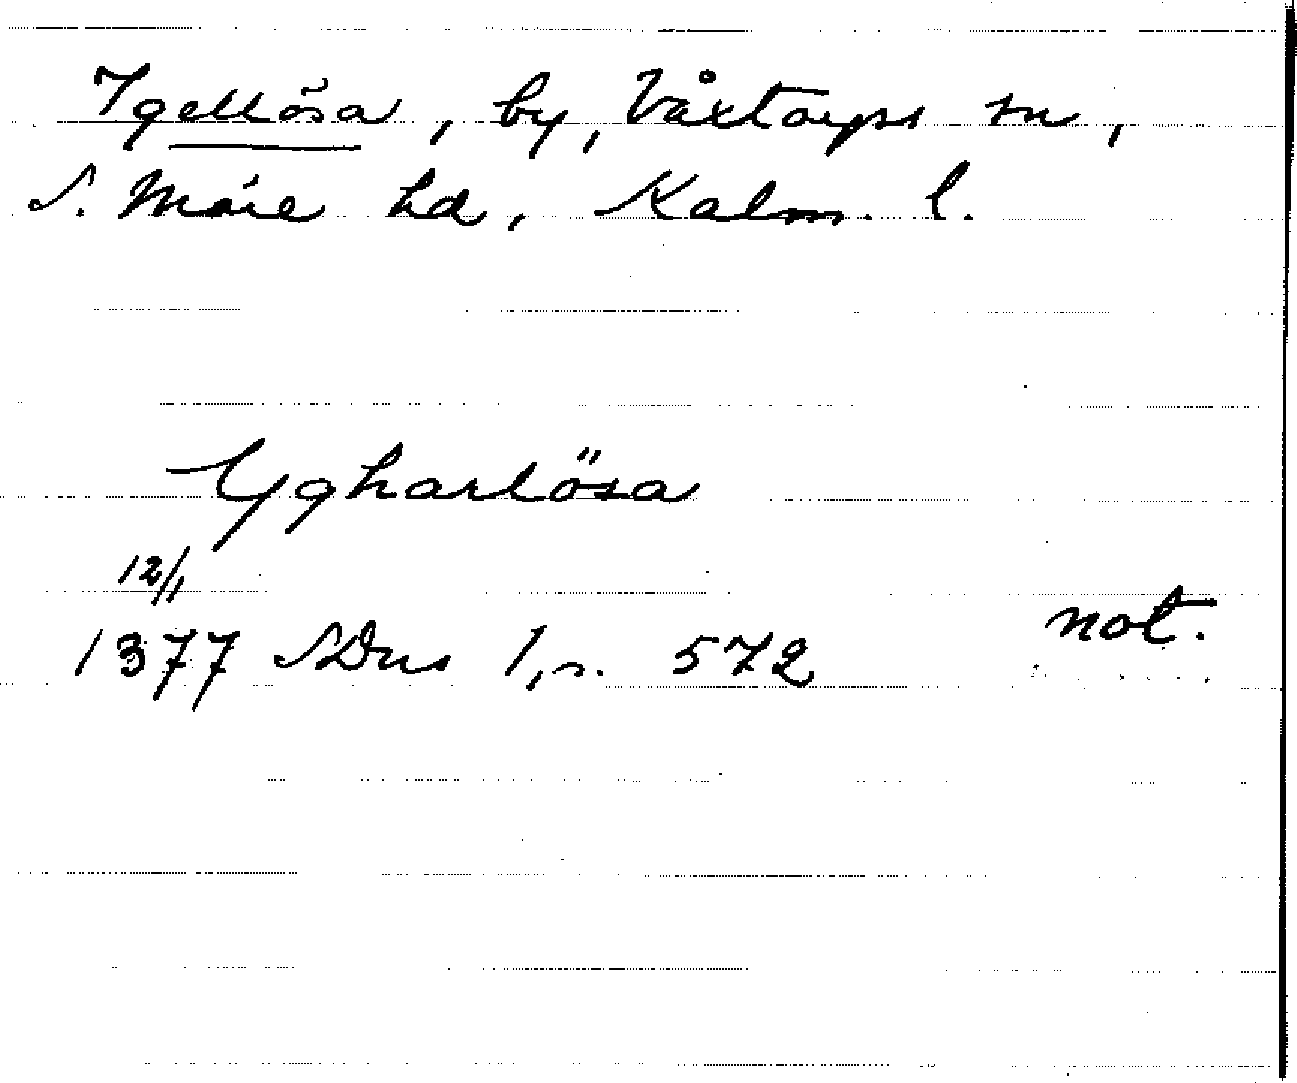 Igellösa, by, Växtorps sn,
S. Möre hd, Kalm. l.
Ygharlösa
12/1
1377 SDns 1, n. 572 not.